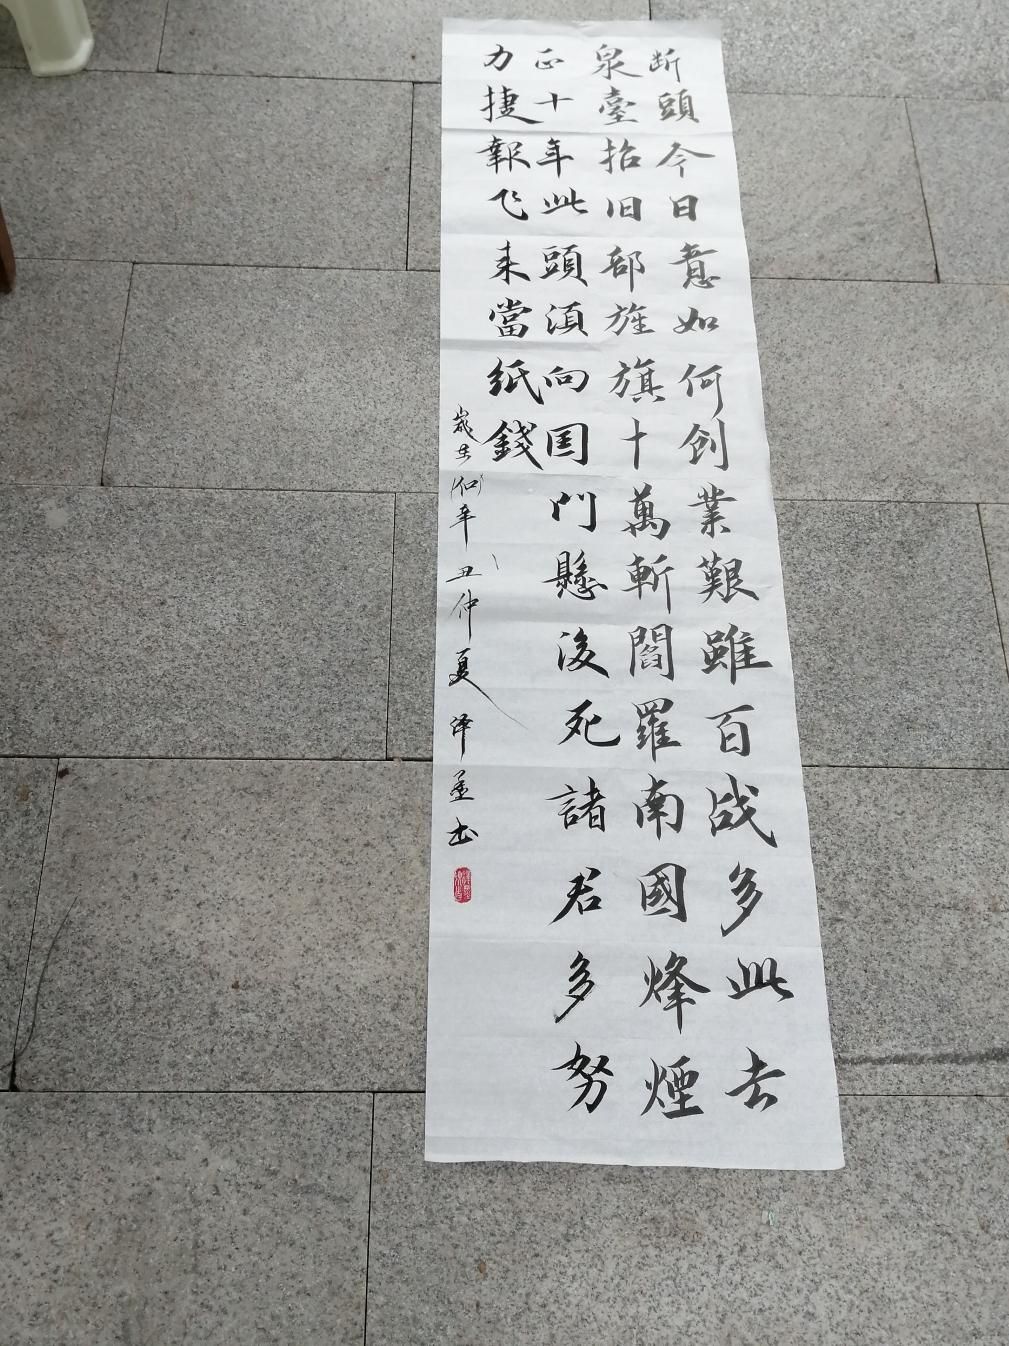 断頭今日意如何創業艱雖百战多此去
泉臺招旧部旌旗十萬斬閻羅南國烽煙
正十年此頭須向国門懸後死諸君多努
力捷報飞来當紙錢
歲在辛丑仲夏泽書